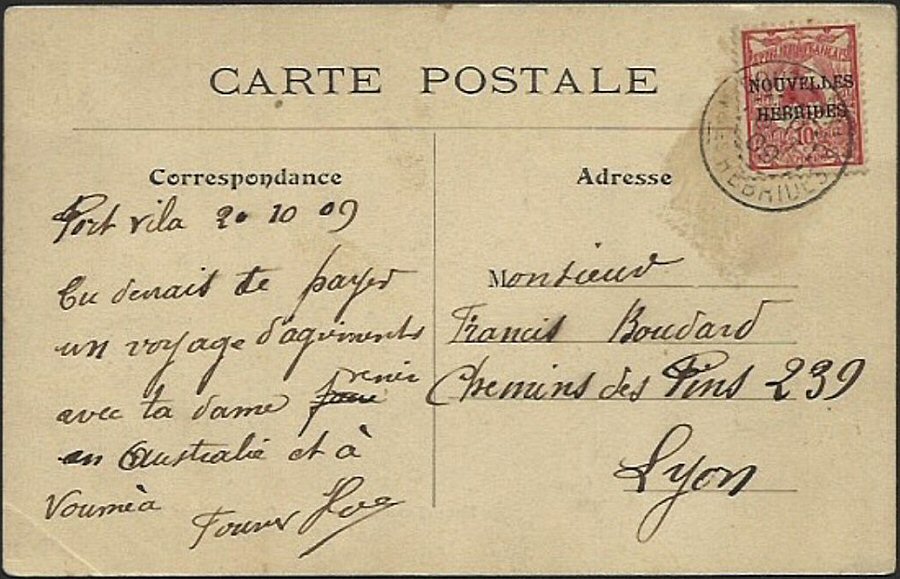 CARTE POSTALE
NOUVELLES
HEBRIDES
10
HEBRIDES
Correspondance
Port Vila 20 10 09
Tu devrais te payer
un voyage d'agriments
avec ta dame venir
en Australie et à
Vouméa
Adresse
Monsieur
Francis Boudard
Chemins des Pins 239
Lyon